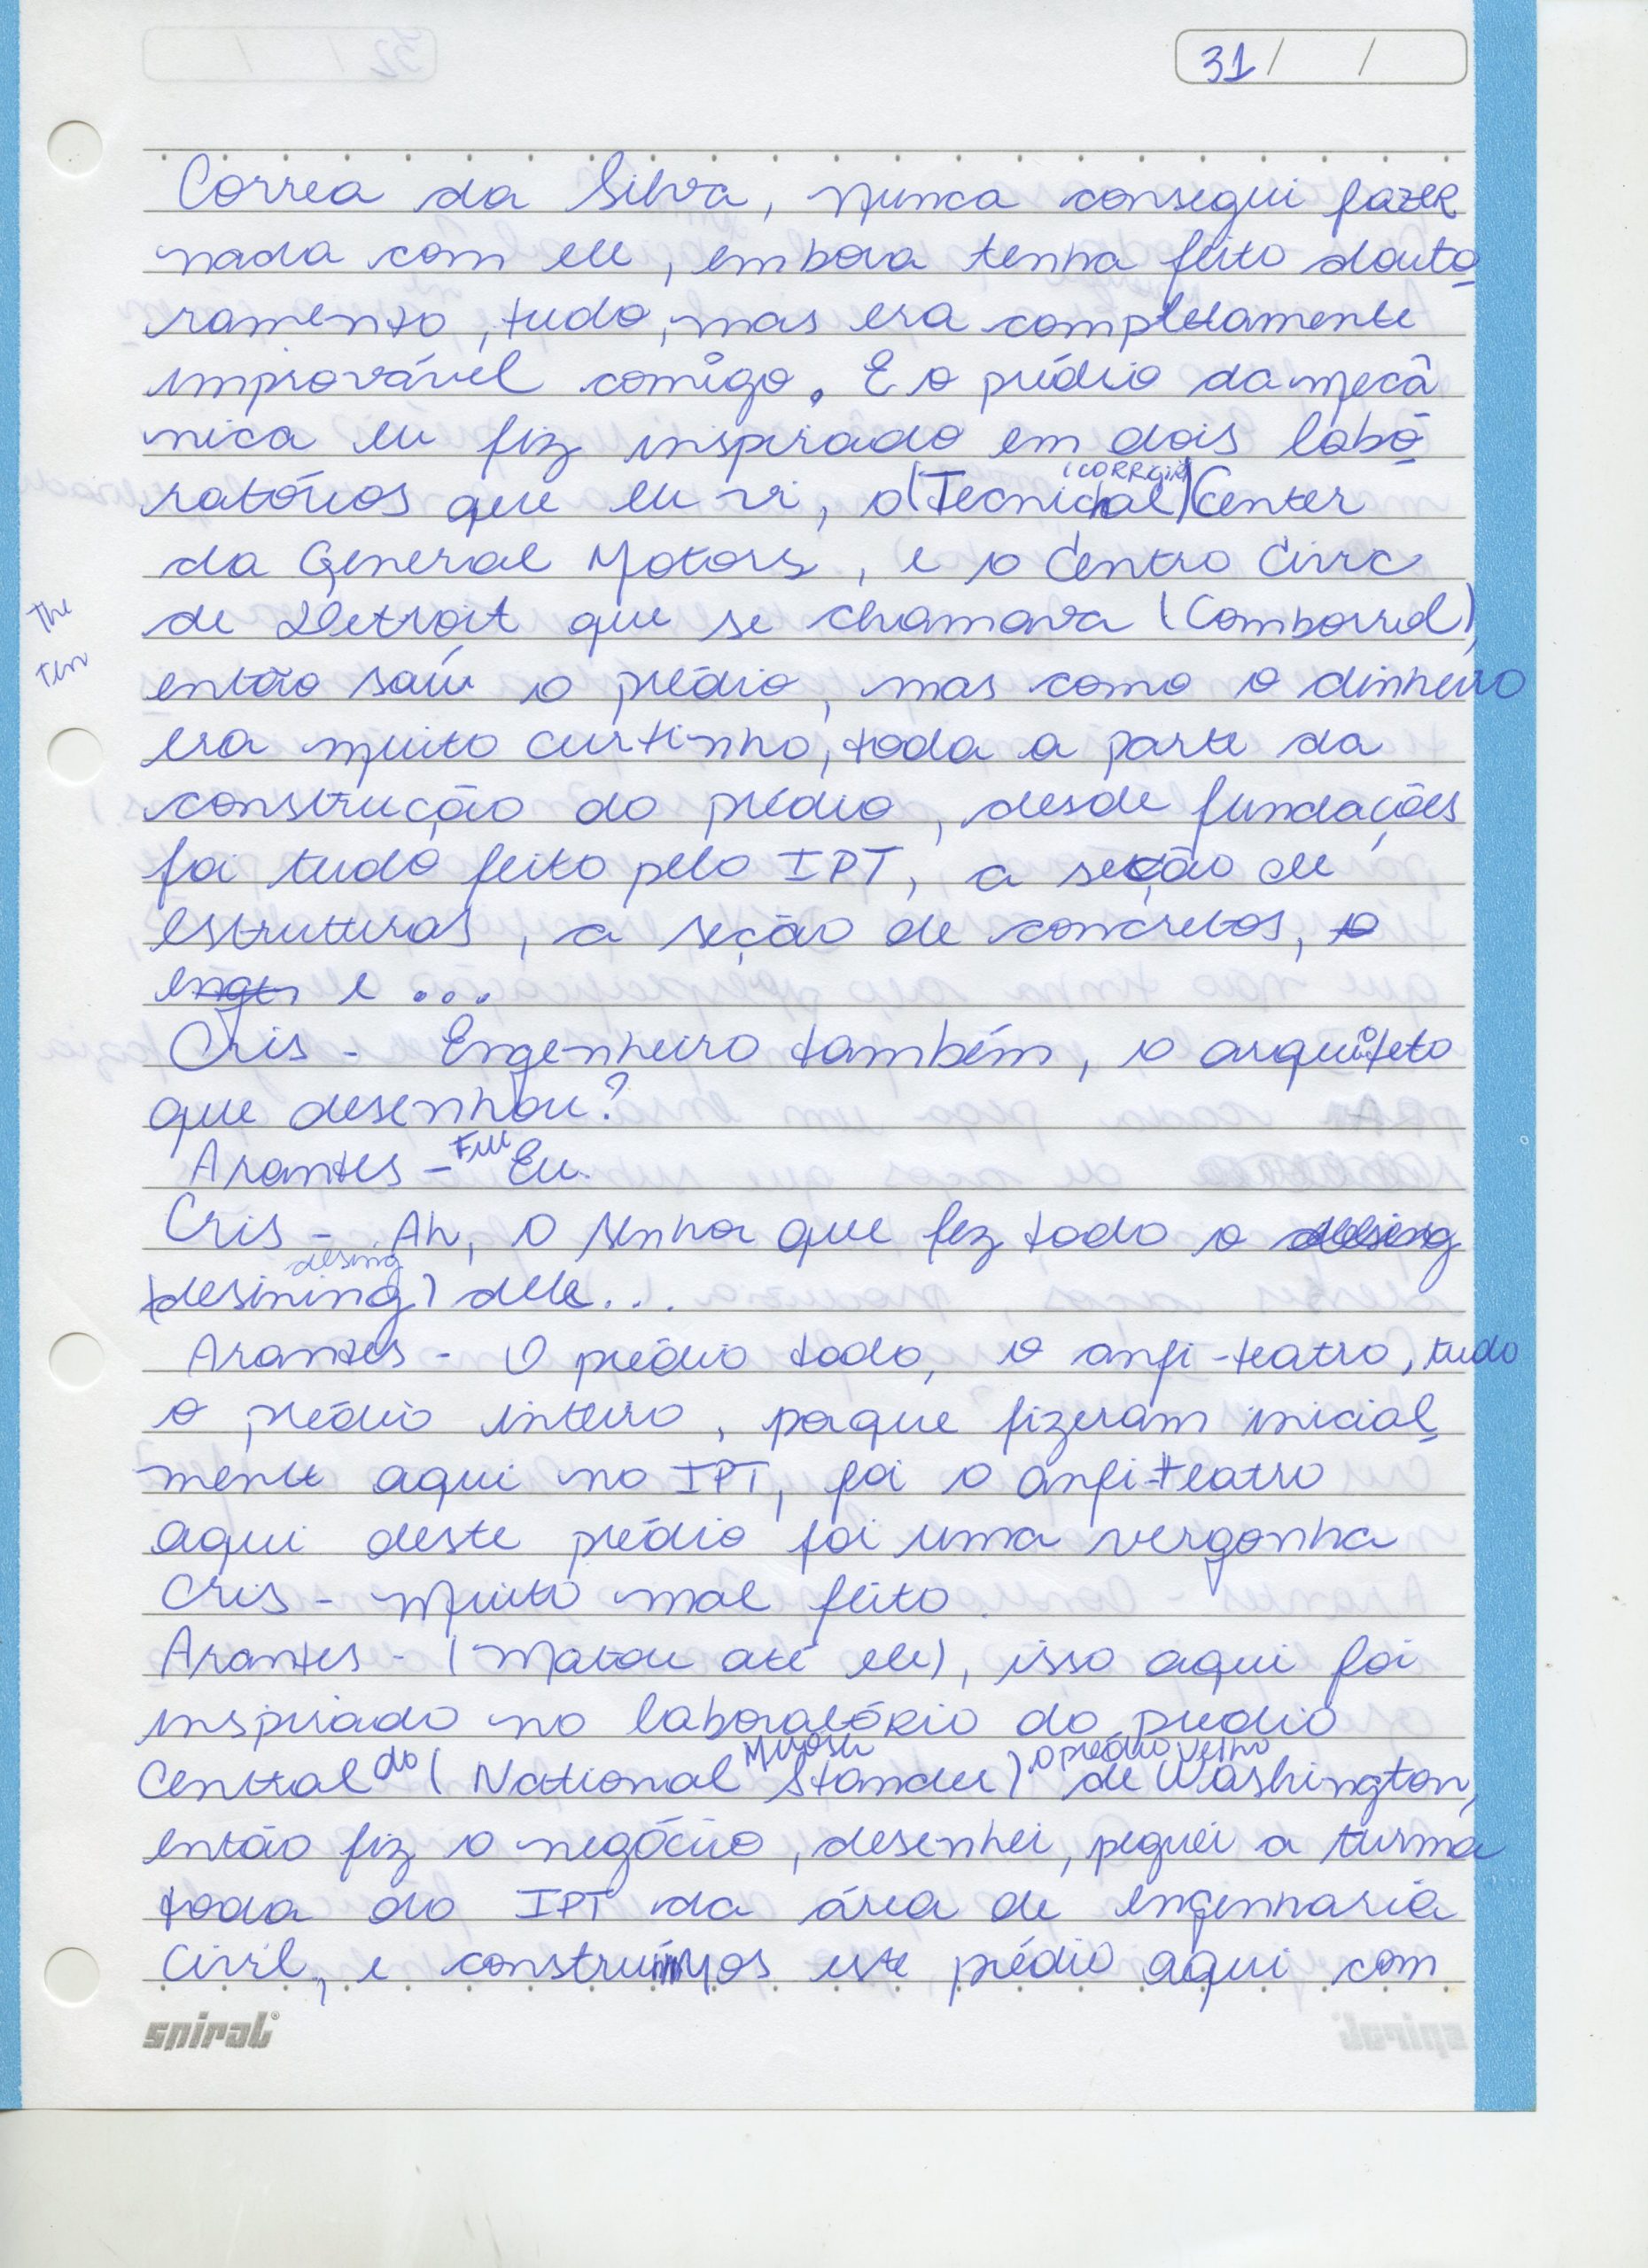 31 / /
Correa da Silva, nunca consegui fazer
nada com ele, embora tenha feito douto
ramento, tudo, mas era completamente
improvável comigo. E o prédio da mecâ
nica eu fiz inspirado em dois labo
ratórios que eu vi, o (Tecnichal) Center
da General Motors, e o Centro Civic
de Detroit que se chamava (Comborrel),
The
Ten
então saíu o prédio, mas como o dinheiro
era muito curtinho, toda a parte da
construção do prédio, desde fundações
foi tudo feito pelo IPT, a seção de
estruturas, a seção de concretos, o
engs e ...
Cris - Engenheiro também, o arquiteto
que desenhou?
Arantes - Eu.
Cris - Ah, o senhor que fez todo o desing
desing
(desining) dele...
Arantes - O prédio todo, o anfi-teatro, tudo
o prédio inteiro, porque fizeram inicial
mente aqui no IPT, foi o anfi-teatro
aqui deste prédio foi uma vergonha
Cris - Muito mal feito.
Arantes - (Matou até ele), isso aqui foi
inspirado no laboratório do predio
o prédio velho
Central do (National Stander) de Washington,
então fiz o negócio, desenhei, peguei a turma
toda do IPT da área de engenharia
Civil, e construímos este prédio aqui com
spiral®